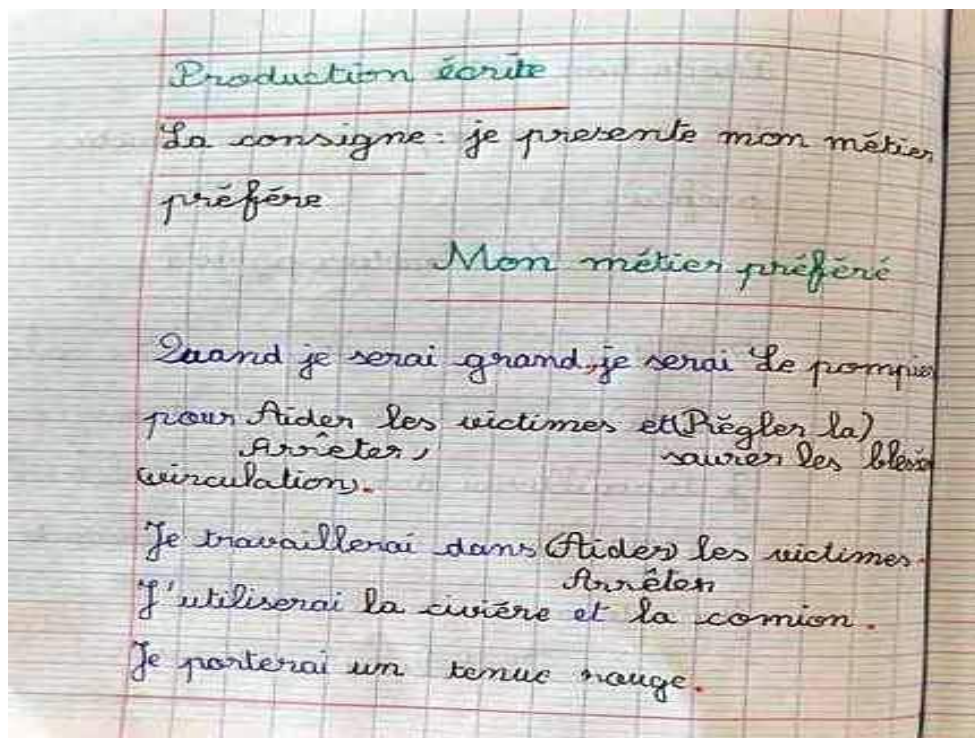 Production écrite
La consigne: je presente mon métier
préfére
Mon métier préféré
Quand je serai grand, je serai Le pompier
pour Aider les victimes et (Règler la)
Arrêter, sauver les blessé
(circulation).
Je travaillerai dans (Aider) les victimes.
Arrêter
J'utiliserai la civiére et la comion.
Je porterai un tenue rouge.